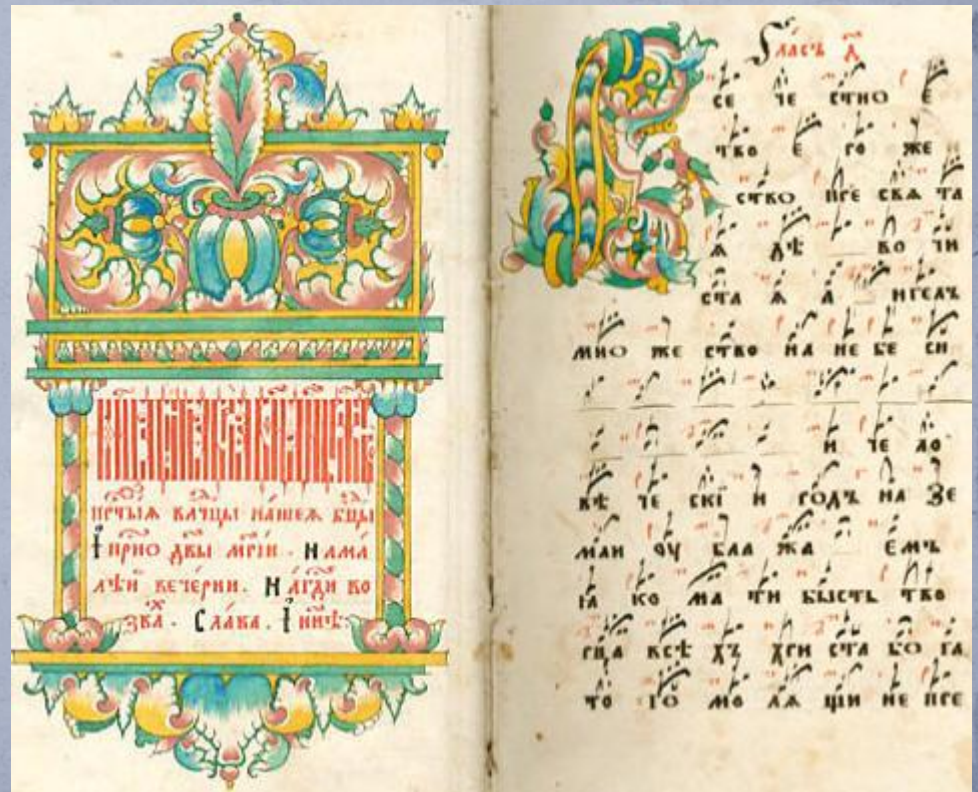 прⷭ҇тыѧ влⷣчцы нашеѧ бцⷣы
І прⷭ҇но двы мр҃іи . Нама
лѣи вечерни . На гдⷭ҇и во
звахⷯ . Слава . І ннⷩ҇ѣ :
Гласъ
се че стно е
тво е ро же
ство пре свѧ та
ѧ дѣ во чи
ста ѧ а нгелъ
мно же ство на не бе си
и че ло
вѣ че скі и родъ на зе
мли оу бла жа емъ
ꙗ ко ма ти бысть тво
рца всѣ хъ хри ста бо га
то го мо лѧ щи не пре